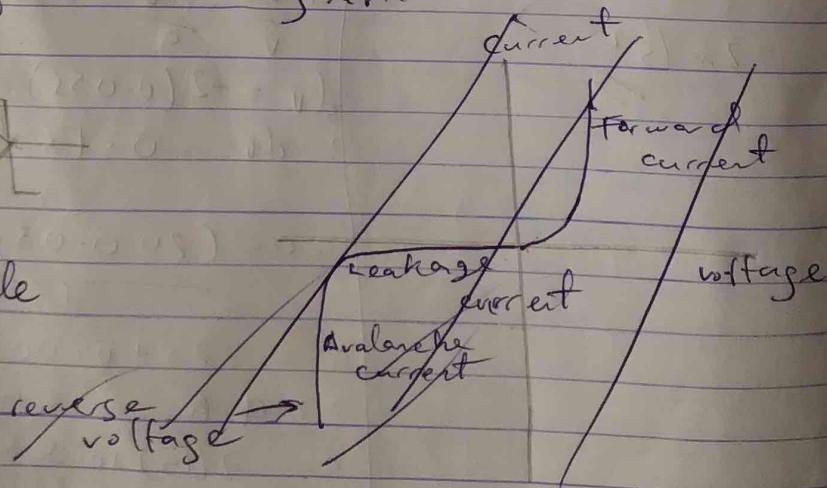 Current
Forward
current
voltage
Leakage
current
le
Avalanche
current
reverse
voltage